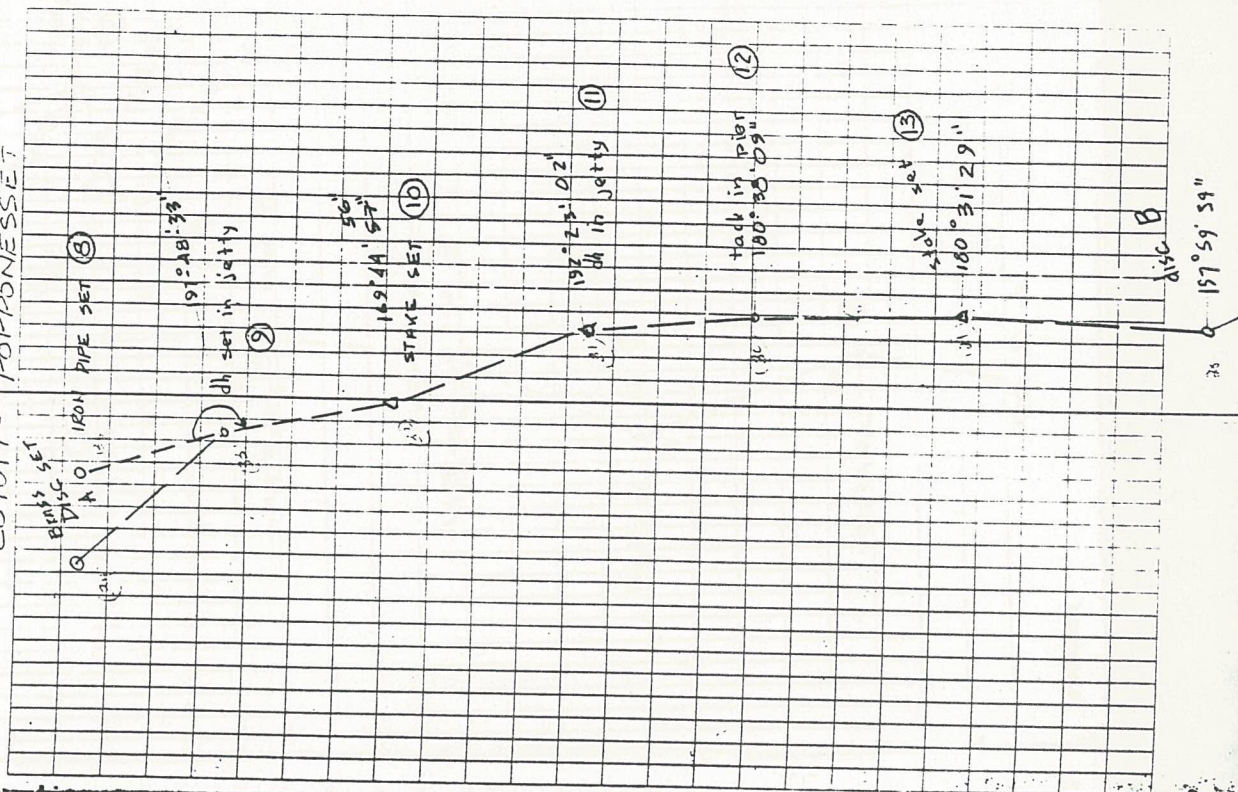 POPPONESSET
BRASS
DISC SET
A
IRON PIPE SET ⑧
197° 48' 33"
dh set in jetty
⑨
56"
169° 44' 57"
STAKE SET ⑩
192° 23' 02"
dh in jetty
⑪
⑫
tack in pier
180° 38' 09"
stake set ⑬
180° 31' 29"
disc B
157° 59' 59"